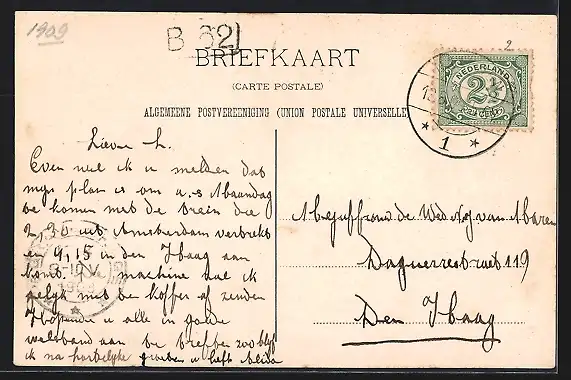 1909
B 62
2
BRIEFKAART
(CARTE POSTALE)
ALGEMEENE POSTVEREENIGING (UNION POSTALE UNIVERSELLE)
NEDERLAND
2½
CENT
1
Lieve L.
Even wil ik u melden dat
mijn plan is om a.s Maandag
te komen met de trein die
2,30 uit Amsterdam vertrekt
en 4,15 in den Haag aan
komt. De machine zal ik
gelijk met de koffer af zenden
Hopende u alle in goede
welstand aan te treffen zoo blijf
ik na hartelijke groeten u liefh
Mejuffrouw de Wed. van Maren
Daguerrestraat 119
Den Haag